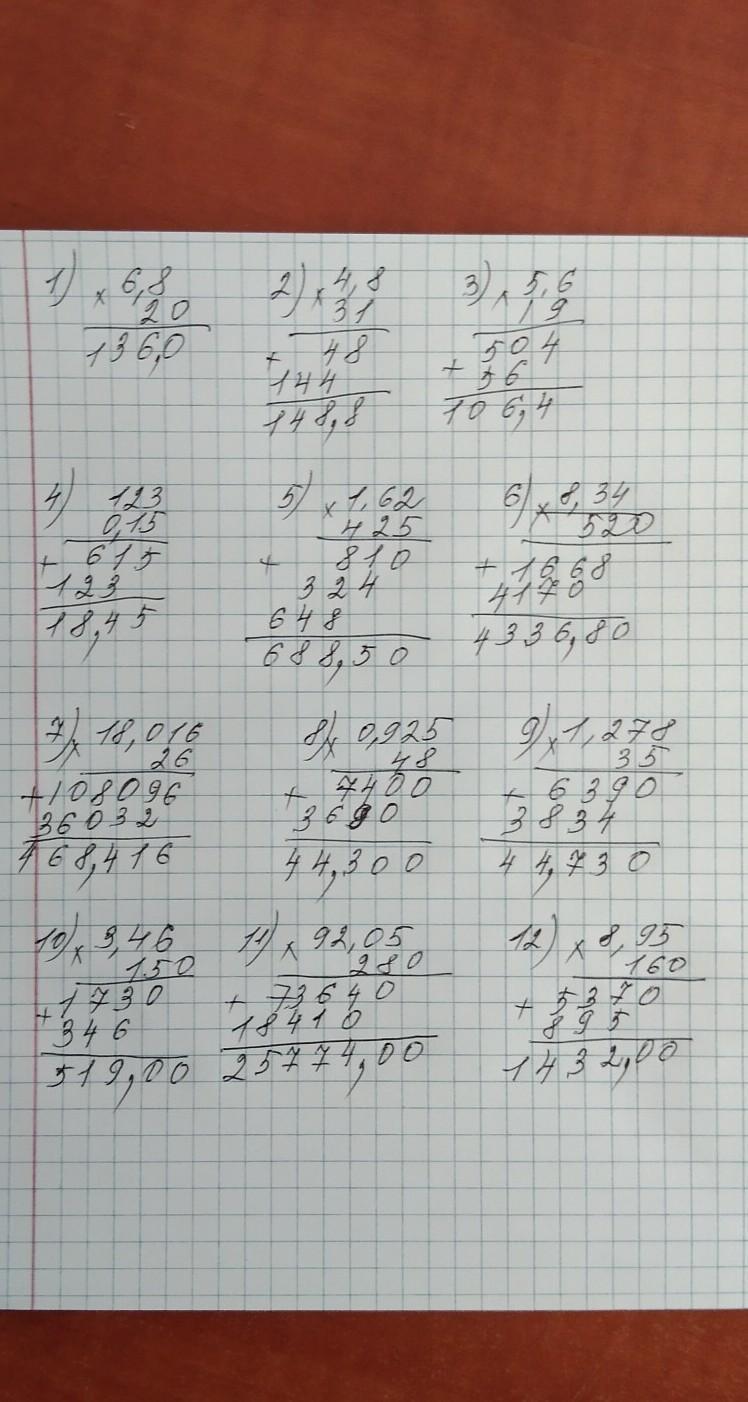 1) × 6,8
20
136,0
2) × 4,8
31
+ 48
144
148,8
3) × 5,6
19
504
+ 56
106,4
4) 123
0,15
+ 615
123
18,45
5) × 1,62
425
+ 810
324
648
688,50
6) × 8,34
520
+ 1668
4170
4336,80
7) × 18,016
26
+ 108096
36032
468,416
8) × 0,925
48
+ 7400
3690
44,300
9) × 1,278
35
+ 6390
3834
44,730
10) × 3,46
150
+ 1730
346
519,00
11) × 92,05
280
+ 73640
18410
25774,00
12) × 8,95
160
+ 5370
895
1432,00